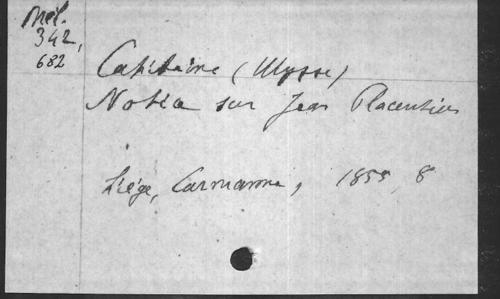 Mél.
342,
682
Capitaine (Ulysse)
Notice sur Jean Placentius
Liége, Carmanne, 1855, 8